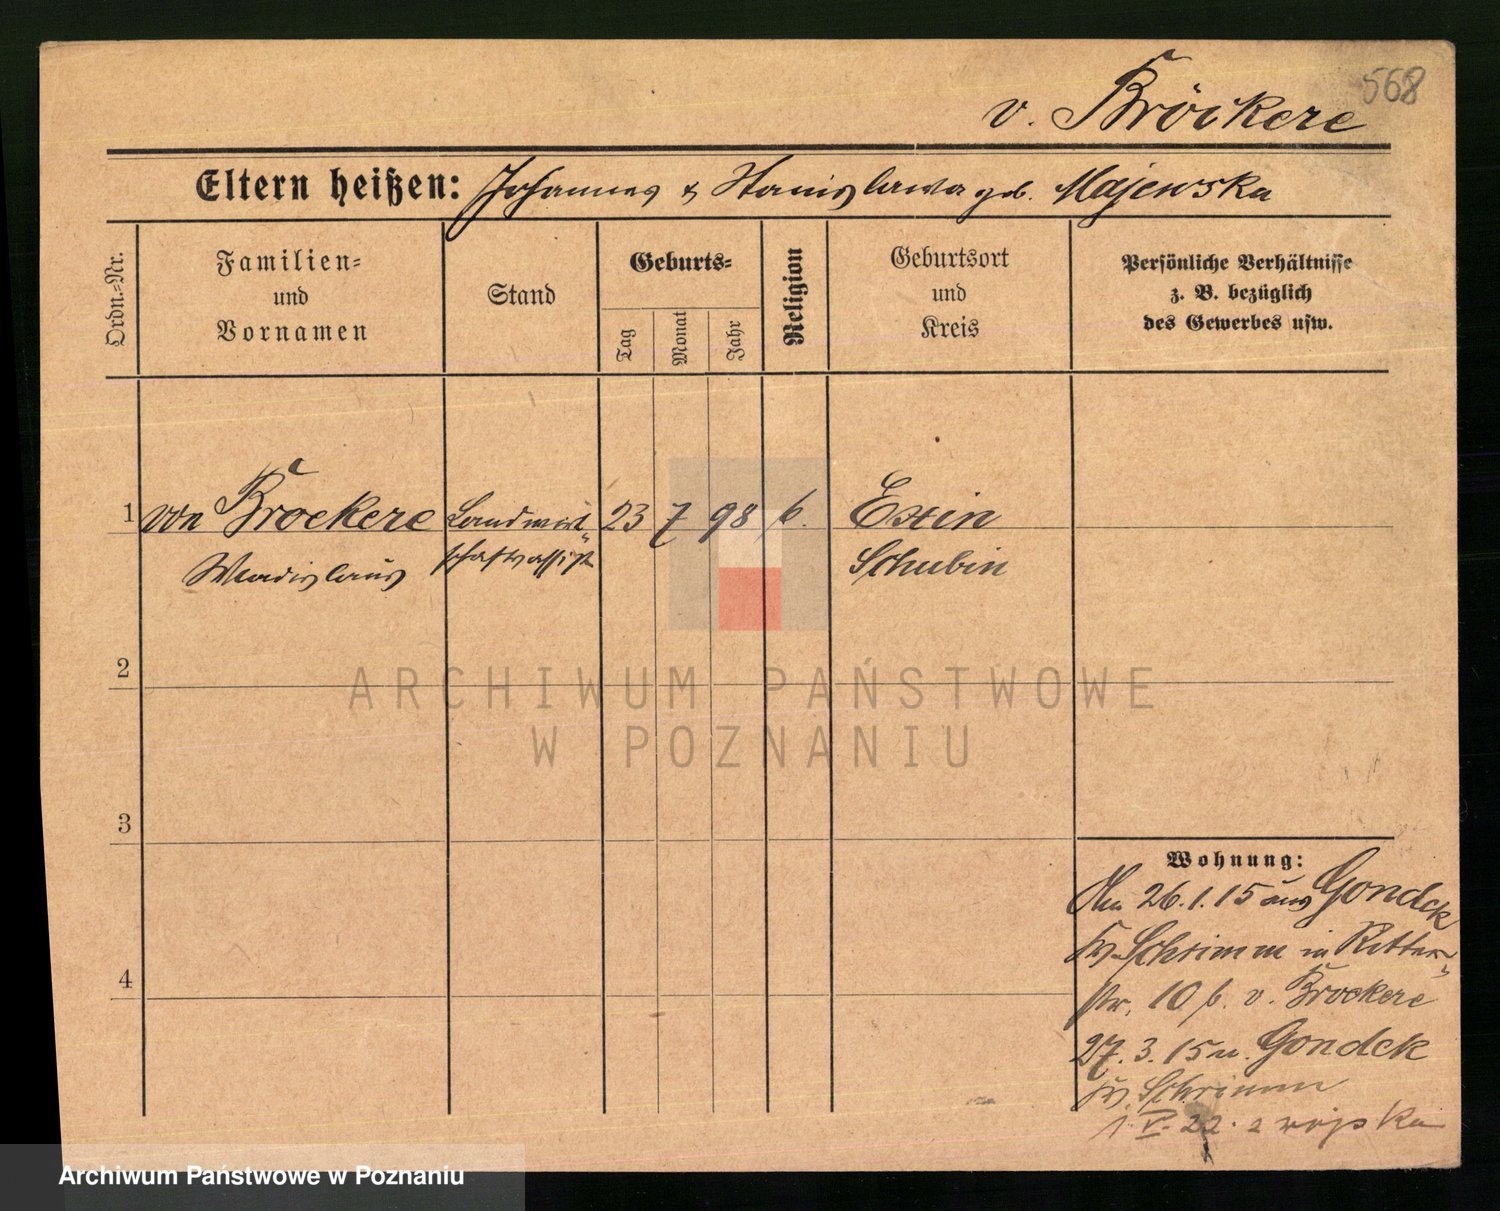 568
v. Bröckere
Eltern heißen: Johannes & Stanislawa geb. Majewska
Ordn.-Nr.
Familien-
und
Vornamen
Stand
Geburts-
Tag
Monat
Jahr
Religion
Geburtsort
und
Kreis
Persönliche Verhältnisse
z. B. bezüglich
des Gewerbes usw.
1 von Broekere Landwirt- 23 7 98 k. Exin
Wladislaus schaftsassist. Schubin
2
3
4
Wohnung:
Am 26.1.15 aus Gondek
Kr. Schrimm in Ritter-
str. 10 b. v. Broekere
27.3.15 n. Gondek
Kr. Schrimm
1. V. 22. z wojska
ARCHIWUM PAŃSTWOWE
W POZNANIU
Archiwum Państwowe w Poznaniu